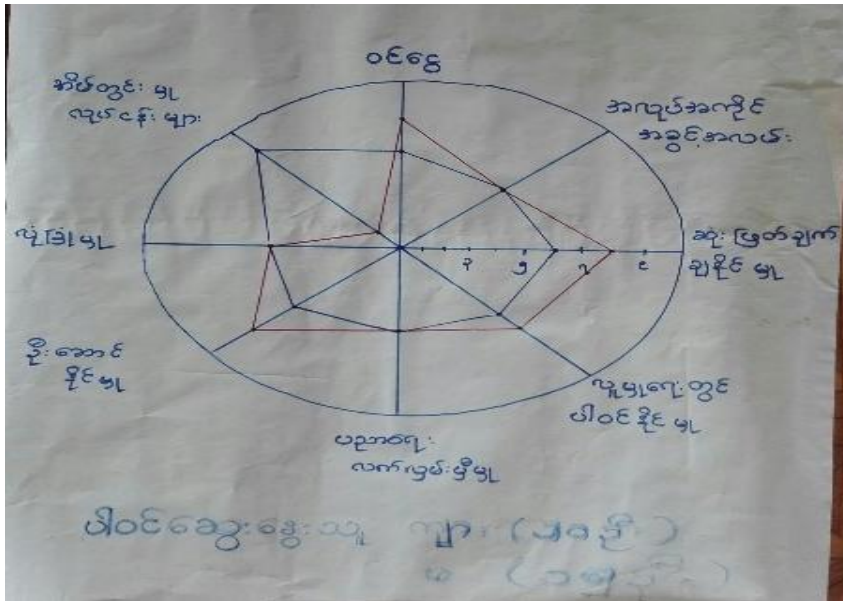 ဝင်ငွေ
အိမ်တွင်းမှု
လုပ်ငန်းများ
အလုပ်အကိုင်
အခွင့်အလမ်း
လုံခြုံမှု
ဆုံးဖြတ်ချက်
ချနိုင်မှု
၃ ၅ ၇ ၉
ဦးဆောင်
နိုင်မှု
လူမှုရေးတွင်
ပါဝင်နိုင်မှု
ပညာရေး
လက်လှမ်းမှီမှု
ပါဝင်ဆွေးနွေးသူ ကျား
မ